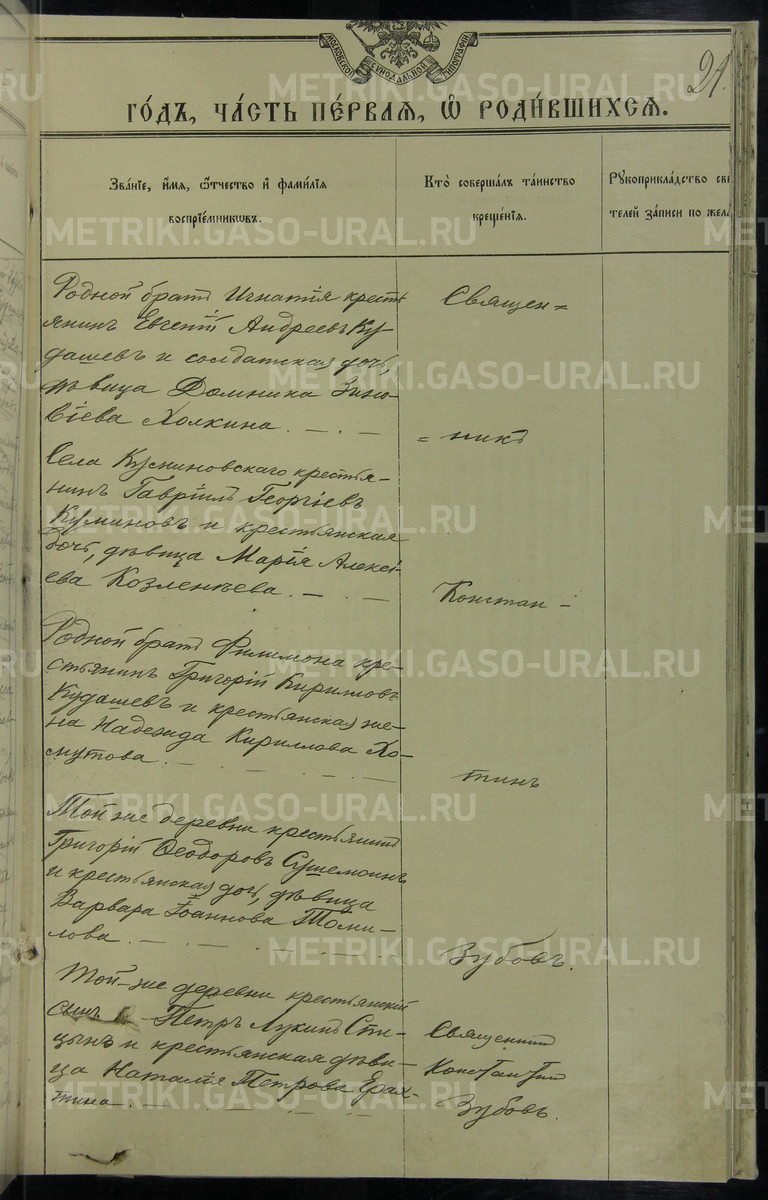 МОСКОВСКОЙ СѴНОДАЛЬНОЙ ТИПОГРАФІИ
21.
ГО́ДЪ, ЧА́СТЬ ПЕ́РВАЯ, Ѡ҆ РОДИ́ВШИХСЯ.
Зва́нїе, и҆́мя, ѻ҆́тчество и҆ фами́лїя
воспрїе́мникѡвъ.
Кто̀ соверша́лъ та́инство
креще́нїя.
Рꙋкоприкла́дство сви
телей за́писи по жела
Родной братъ Игнатія кресть
янинъ Евгеній Андреевъ Ку-
дашевъ и солдатская дочь,
дѣвица Домника Зино-
віева Холкина.
Священ=
=никъ
Села Кусниновскаго крестья-
нинъ Гавріилъ Георгіевъ
Куминовъ и крестьянская
дочь, дѣвица Марія Алексі-
ева Козленьева.
Констан-
Родной братъ Филимона кре-
стьянинъ Григорій Кирилловъ
Кудашевъ и крестьянская же-
на Надежда Кириллова Хо-
мутова.
тинъ
Той же деревни крестьянинъ
Григорій Ѳеодоровъ
и крестьянская дочь, дѣвица
Варвара Іоаннова Томи-
лова.
Зубовъ.
Той-же деревни крестьянскій
сынъ Петръ Лукинъ Спи-
цынъ и крестьянская дѣви-
ца Наталія Петрова
тина.
Священникъ
Константинъ
Зубовъ.
METRIKI.GASO-URAL.RU